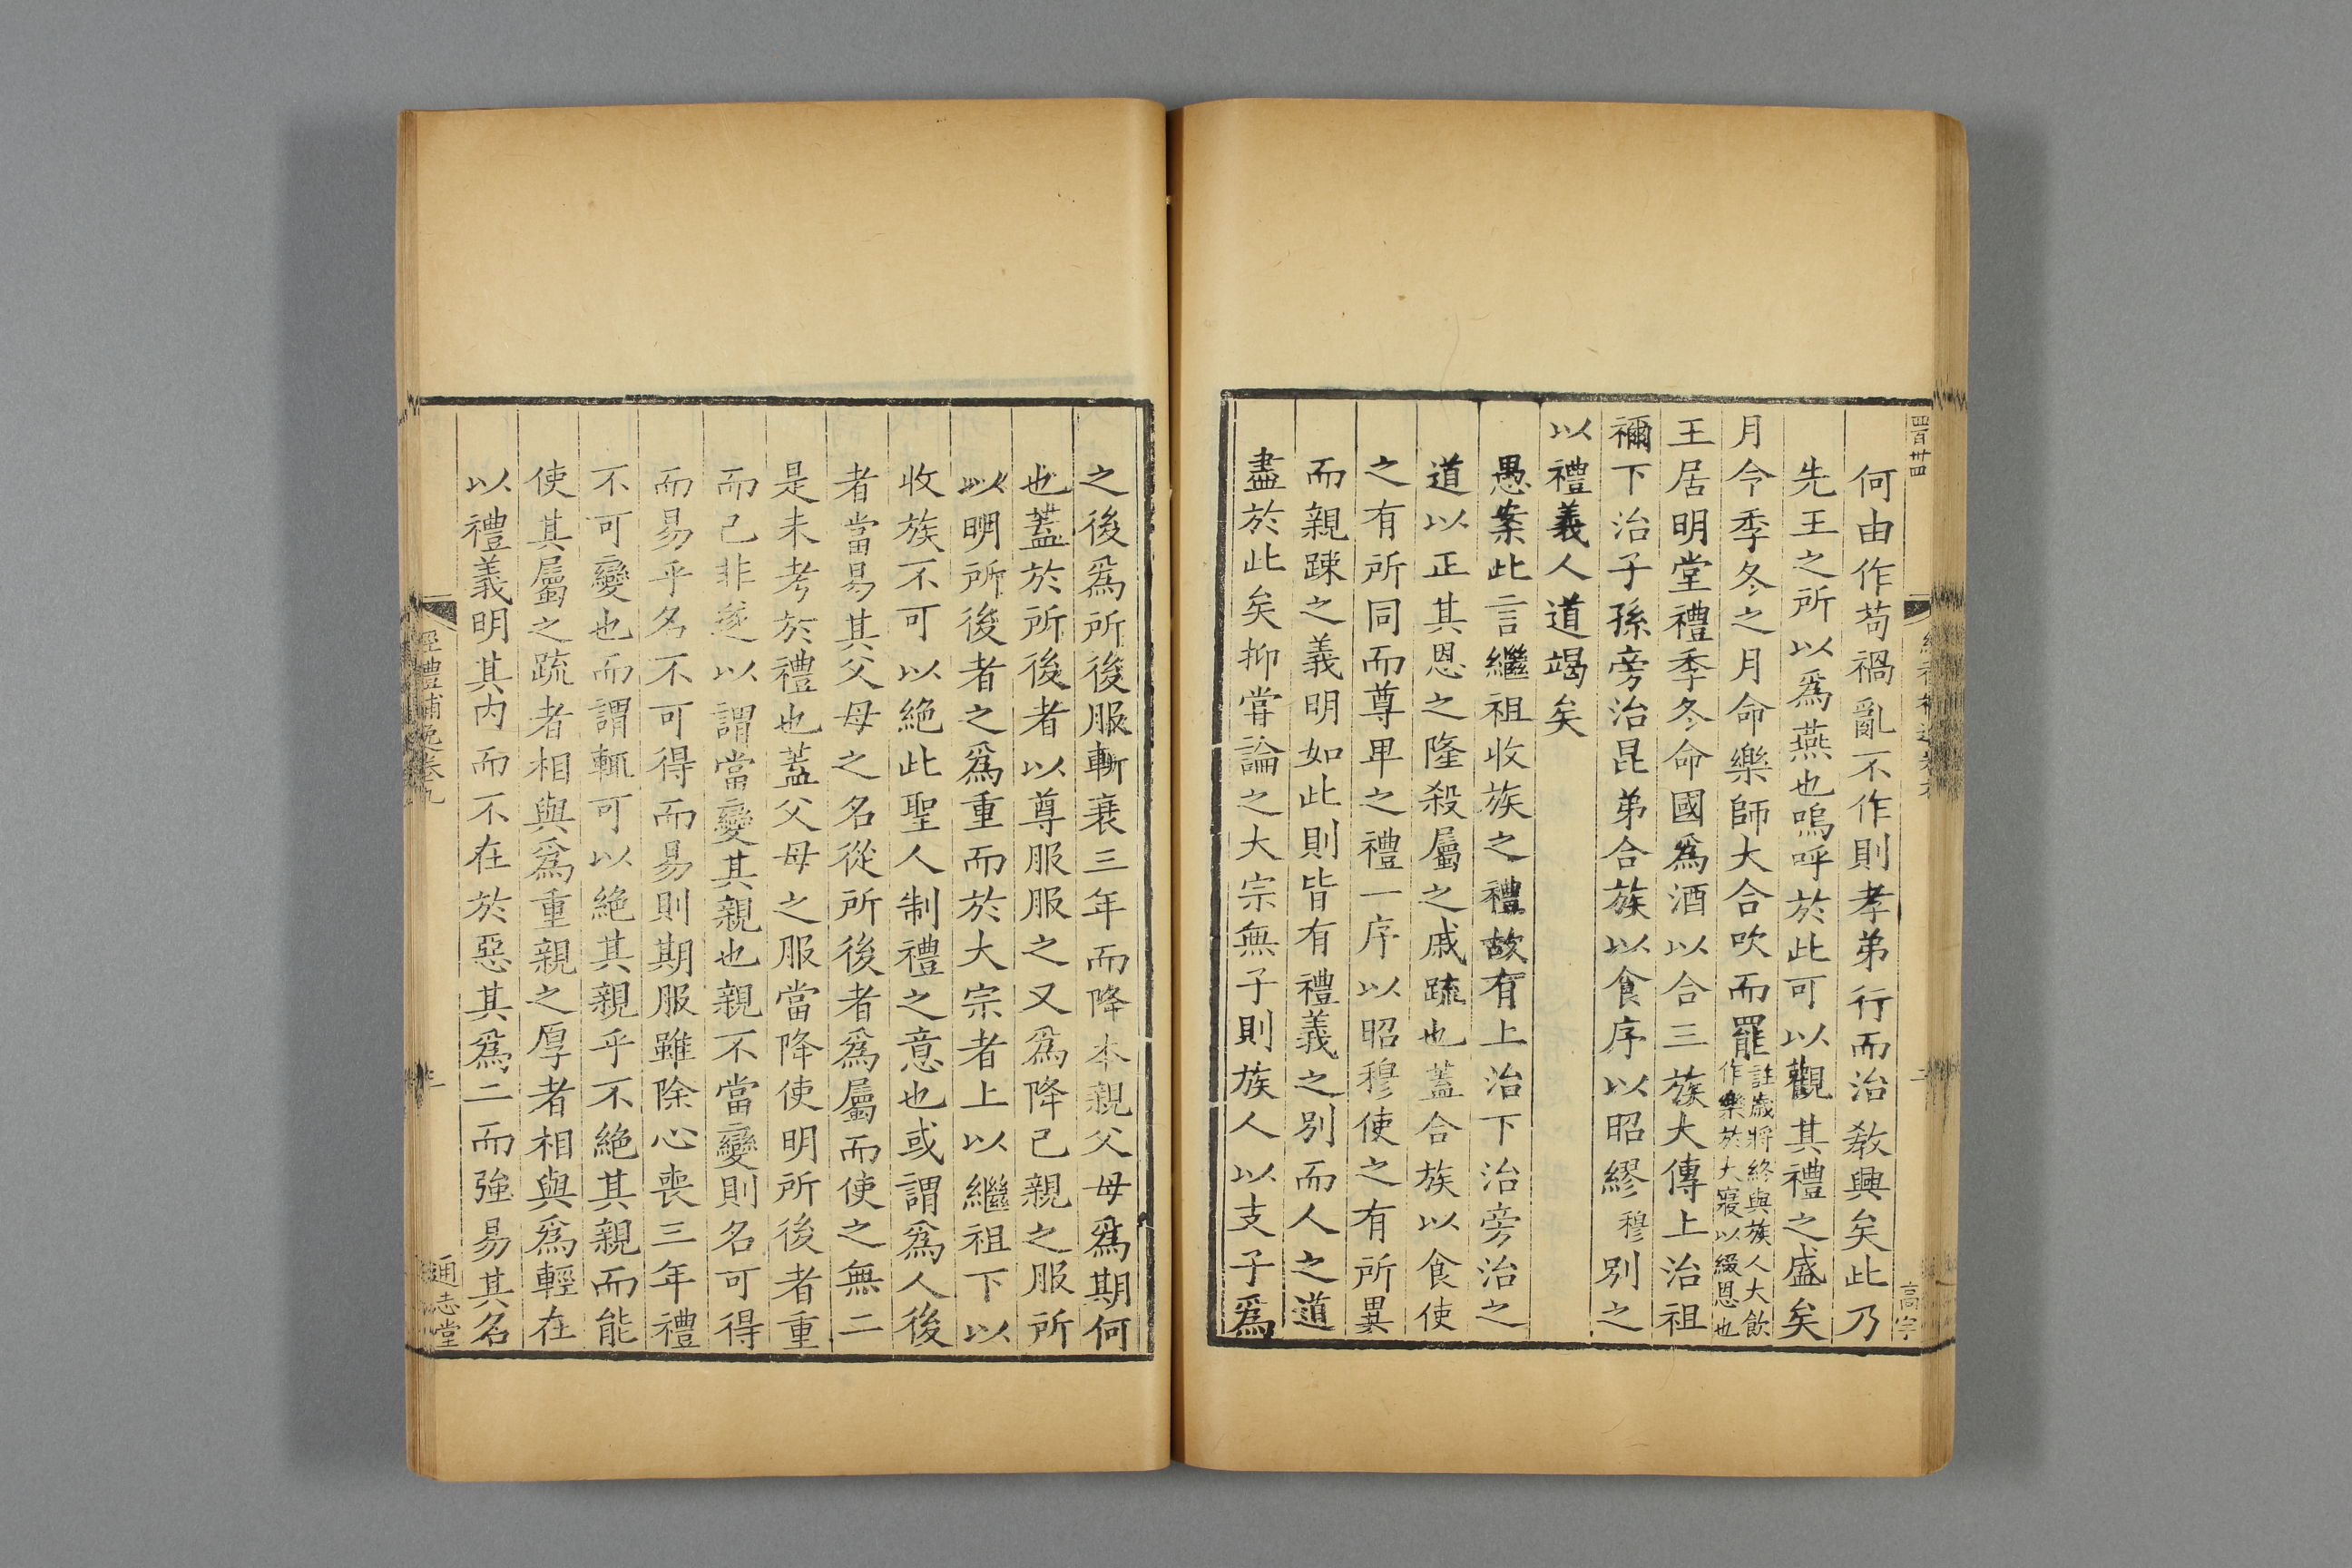 四百廿四
高宇
何由作苟禍亂不作則孝弟行而治敎興矣此乃
先王之所以爲燕也嗚呼於此可以觀其禮之盛矣
月令季冬之月命樂師大合吹而罷註歲將終與族人大飲作樂於大寢以綴恩也
王居明堂禮季冬命國爲酒以合三族大傳上治祖
禰下治子孫旁治昆弟合族以食序以昭繆穆別之
以禮義人道竭矣
愚案此言繼祖收族之禮故有上治下治旁治之
道以正其恩之隆殺屬之戚疏也蓋合族以食使
之有所同而尊卑之禮一序以昭穆使之有所異
而親踈之義明如此則皆有禮義之別而人之道
盡於此矣抑嘗論之大宗無子則族人以支子爲
之後爲所後服斬衰三年而降本親父母爲期何
也蓋於所後者以尊服服之又爲降己親之服所
以明所後者之爲重而於大宗者上以繼祖下以
收族不可以絶此聖人制禮之意也或謂爲人後
者當易其父母之名從所後者爲屬而使之無二
是未考於禮也蓋父母之服當降使明所後者重
而已非遂以謂當變其親也親不當變則名可得
而易乎名不可得而易則期服雖除心喪三年禮
不可變也而謂輒可以絶其親乎不絶其親而能
使其屬之疏者相與爲重親之厚者相與爲輕在
以禮義明其内而不在於惡其爲二而強易其名
經禮補逸卷九
通志堂